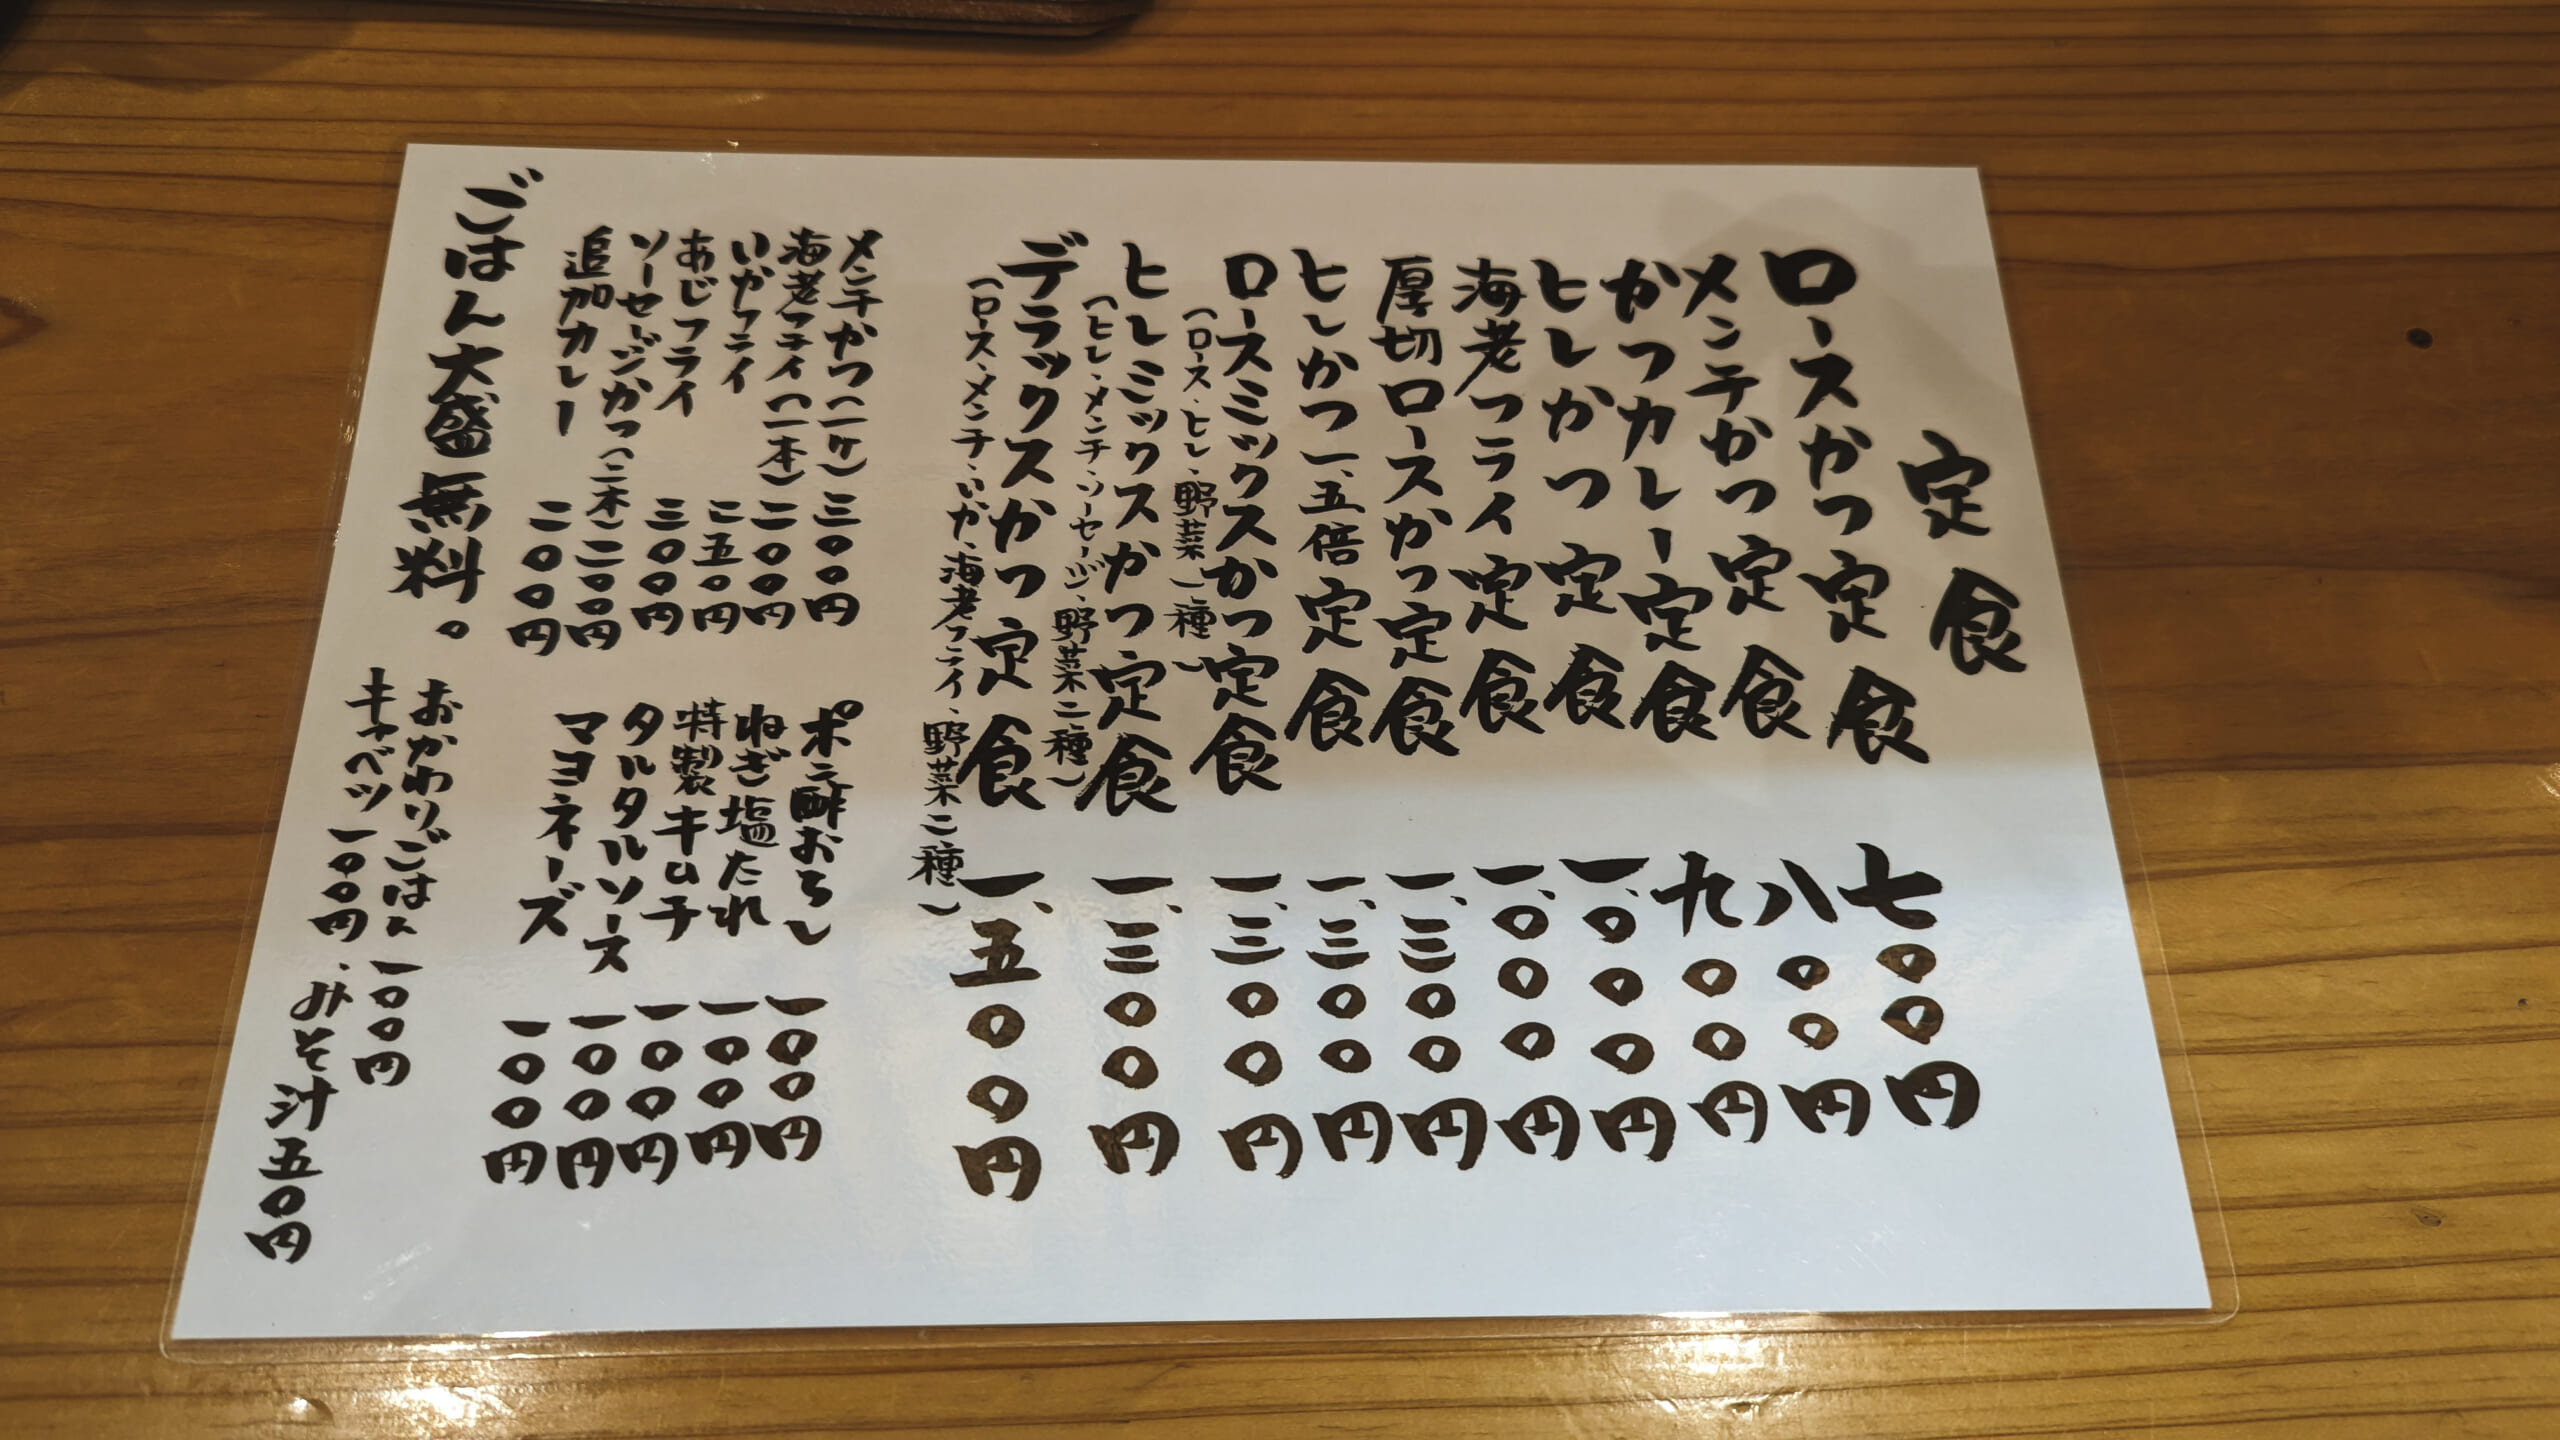 定食
ロースかつ定食 七〇〇円
メンチかつ定食 八〇〇円
かつカレー定食 九〇〇円
ヒレかつ定食 一、〇〇〇円
海老フライ定食 一、〇〇〇円
厚切ロースかつ定食 一、三〇〇円
ヒレかつ一、五倍定食 一、三〇〇円
ロースミックスかつ定食 一、三〇〇円
(ロース、ヒレ、野菜一種)
ヒレミックスかつ定食 一、三〇〇円
(ヒレ、メンチ、ソーセージ、野菜二種)
デラックスかつ定食 一、五〇〇円
(ロース、メンチ、いか、海老フライ、野菜二種)
メンチかつ(一ケ) 三〇〇円
海老フライ(一本) 二〇〇円
いかフライ 二五〇円
あじフライ 三〇〇円
ソーセージかつ(二本) 二〇〇円
追加カレー 二〇〇円
ポン酢おろし 一〇〇円
ねぎ塩たれ 一〇〇円
特製キムチ 一〇〇円
タルタルソース 一〇〇円
マヨネーズ 一〇〇円
ごはん大盛無料。
おかわりごはん 一〇〇円
キャベツ一〇〇円、みそ汁五〇円